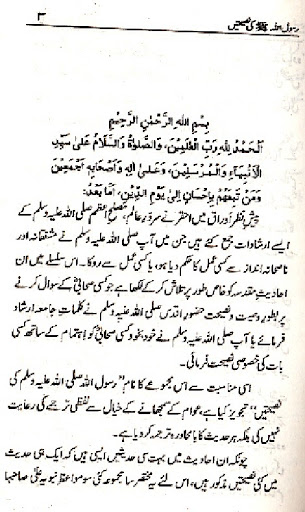 رسول اللہ ﷺ کی نصیحتیں ۳
بِسْمِ اللهِ الرَّحْمٰنِ الرَّحِيْمِ
اَلْحَمْدُ لِلّٰهِ رَبِّ الْعٰلَمِيْنَ، وَالصَّلٰوةُ وَالسَّلَامُ عَلٰى سَيِّدِ
الْاَنْبِيَآءِ وَالْمُرْسَلِيْنَ، وَعَلٰى اٰلِهٖ وَاَصْحَابِهٖ اَجْمَعِيْنَ
وَمَنْ تَبِعَهُمْ بِاِحْسَانٍ اِلٰى يَوْمِ الدِّيْنِ، اَمَّا بَعْدُ:
پیشِ نظر اوراق میں احقر نے سرورِ عالم، مصلحِ اعظم صلی اللہ علیہ وسلم کے
ایسے ارشادات جمع کئے ہیں جن میں آپ صلی اللہ علیہ وسلم نے مشفقانہ اور
ناصحانہ انداز سے کسی عمل کا حکم دیا ہو، یا کسی عمل سے روکا۔ اس سلسلے میں ان
احادیثِ مقدسہ کو خاص طور پر تلاش کر کے لکھا ہے جو کسی صحابیؓ کے سوال کرنے
پر بطورِ وصیت و نصیحت حضورِ اقدس صلی اللہ علیہ وسلم نے کلماتِ جامعہ ارشاد
فرمائے یا آپ صلی اللہ علیہ وسلم نے خود بخود کسی صحابیؓ کو اہتمام کے ساتھ کسی
بات کی خصوصی نصیحت فرمائی۔
اسی مناسبت سے اس مجموعے کا نام "رسول اللہ صلی اللہ علیہ وسلم کی
نصیحتیں" تجویز کیا ہے، عوام کے سمجھانے کے خیال سے لفظی ترجمے کی رعایت
نہیں کی بلکہ ہر حدیث کا بامحاورہ ترجمہ کر دیا ہے۔
چونکہ ان احادیث میں بہت سی حدیثیں ایسی ہیں کہ ایک ہی حدیث
میں کئی نصیحتیں مذکور ہیں، اس لئے یہ مختصر سا مجموعہ کئی سو مواعظِ نبویہ علیٰ صاحبہا